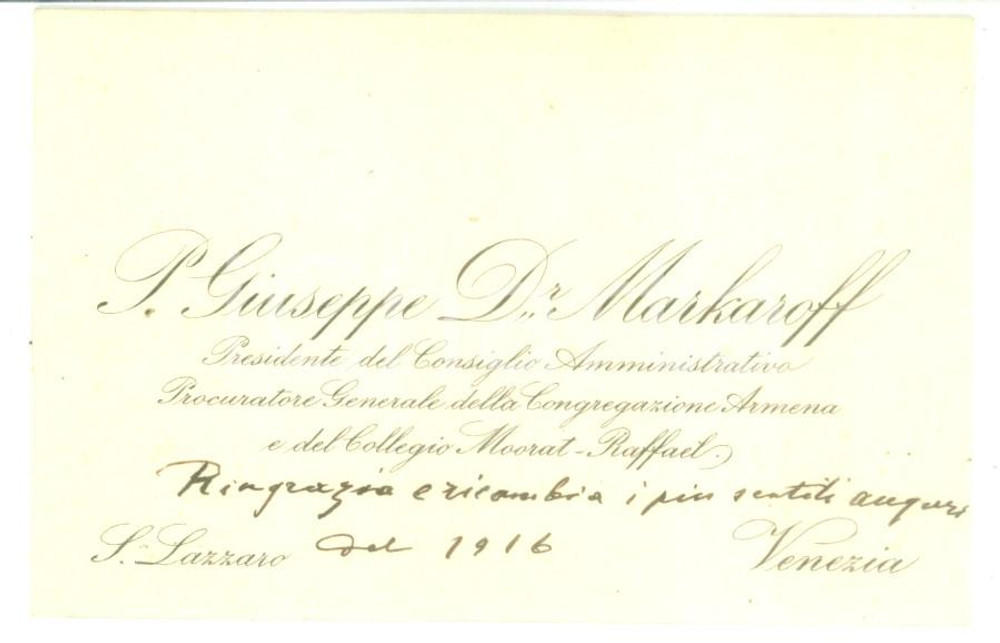 P. Giuseppe Dr. Markaroff
Presidente del Consiglio Amministrativo
Procuratore Generale della Congregazione Armena
e del Collegio Moorat-Raffael.
Ringrazia e ricambia i più sentiti auguri
del 1916
S. Lazzaro
Venezia